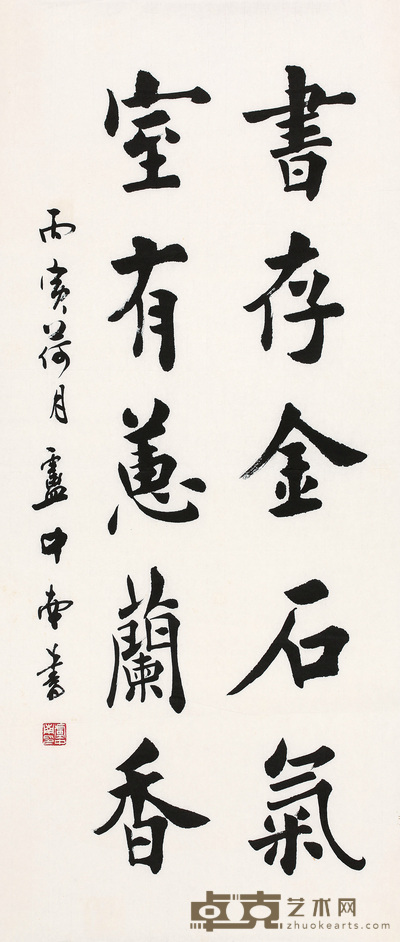 書存金石氣
室有蕙蘭香
丙寅荷月盧中南書
卓克艺术网
zhuokearts.com